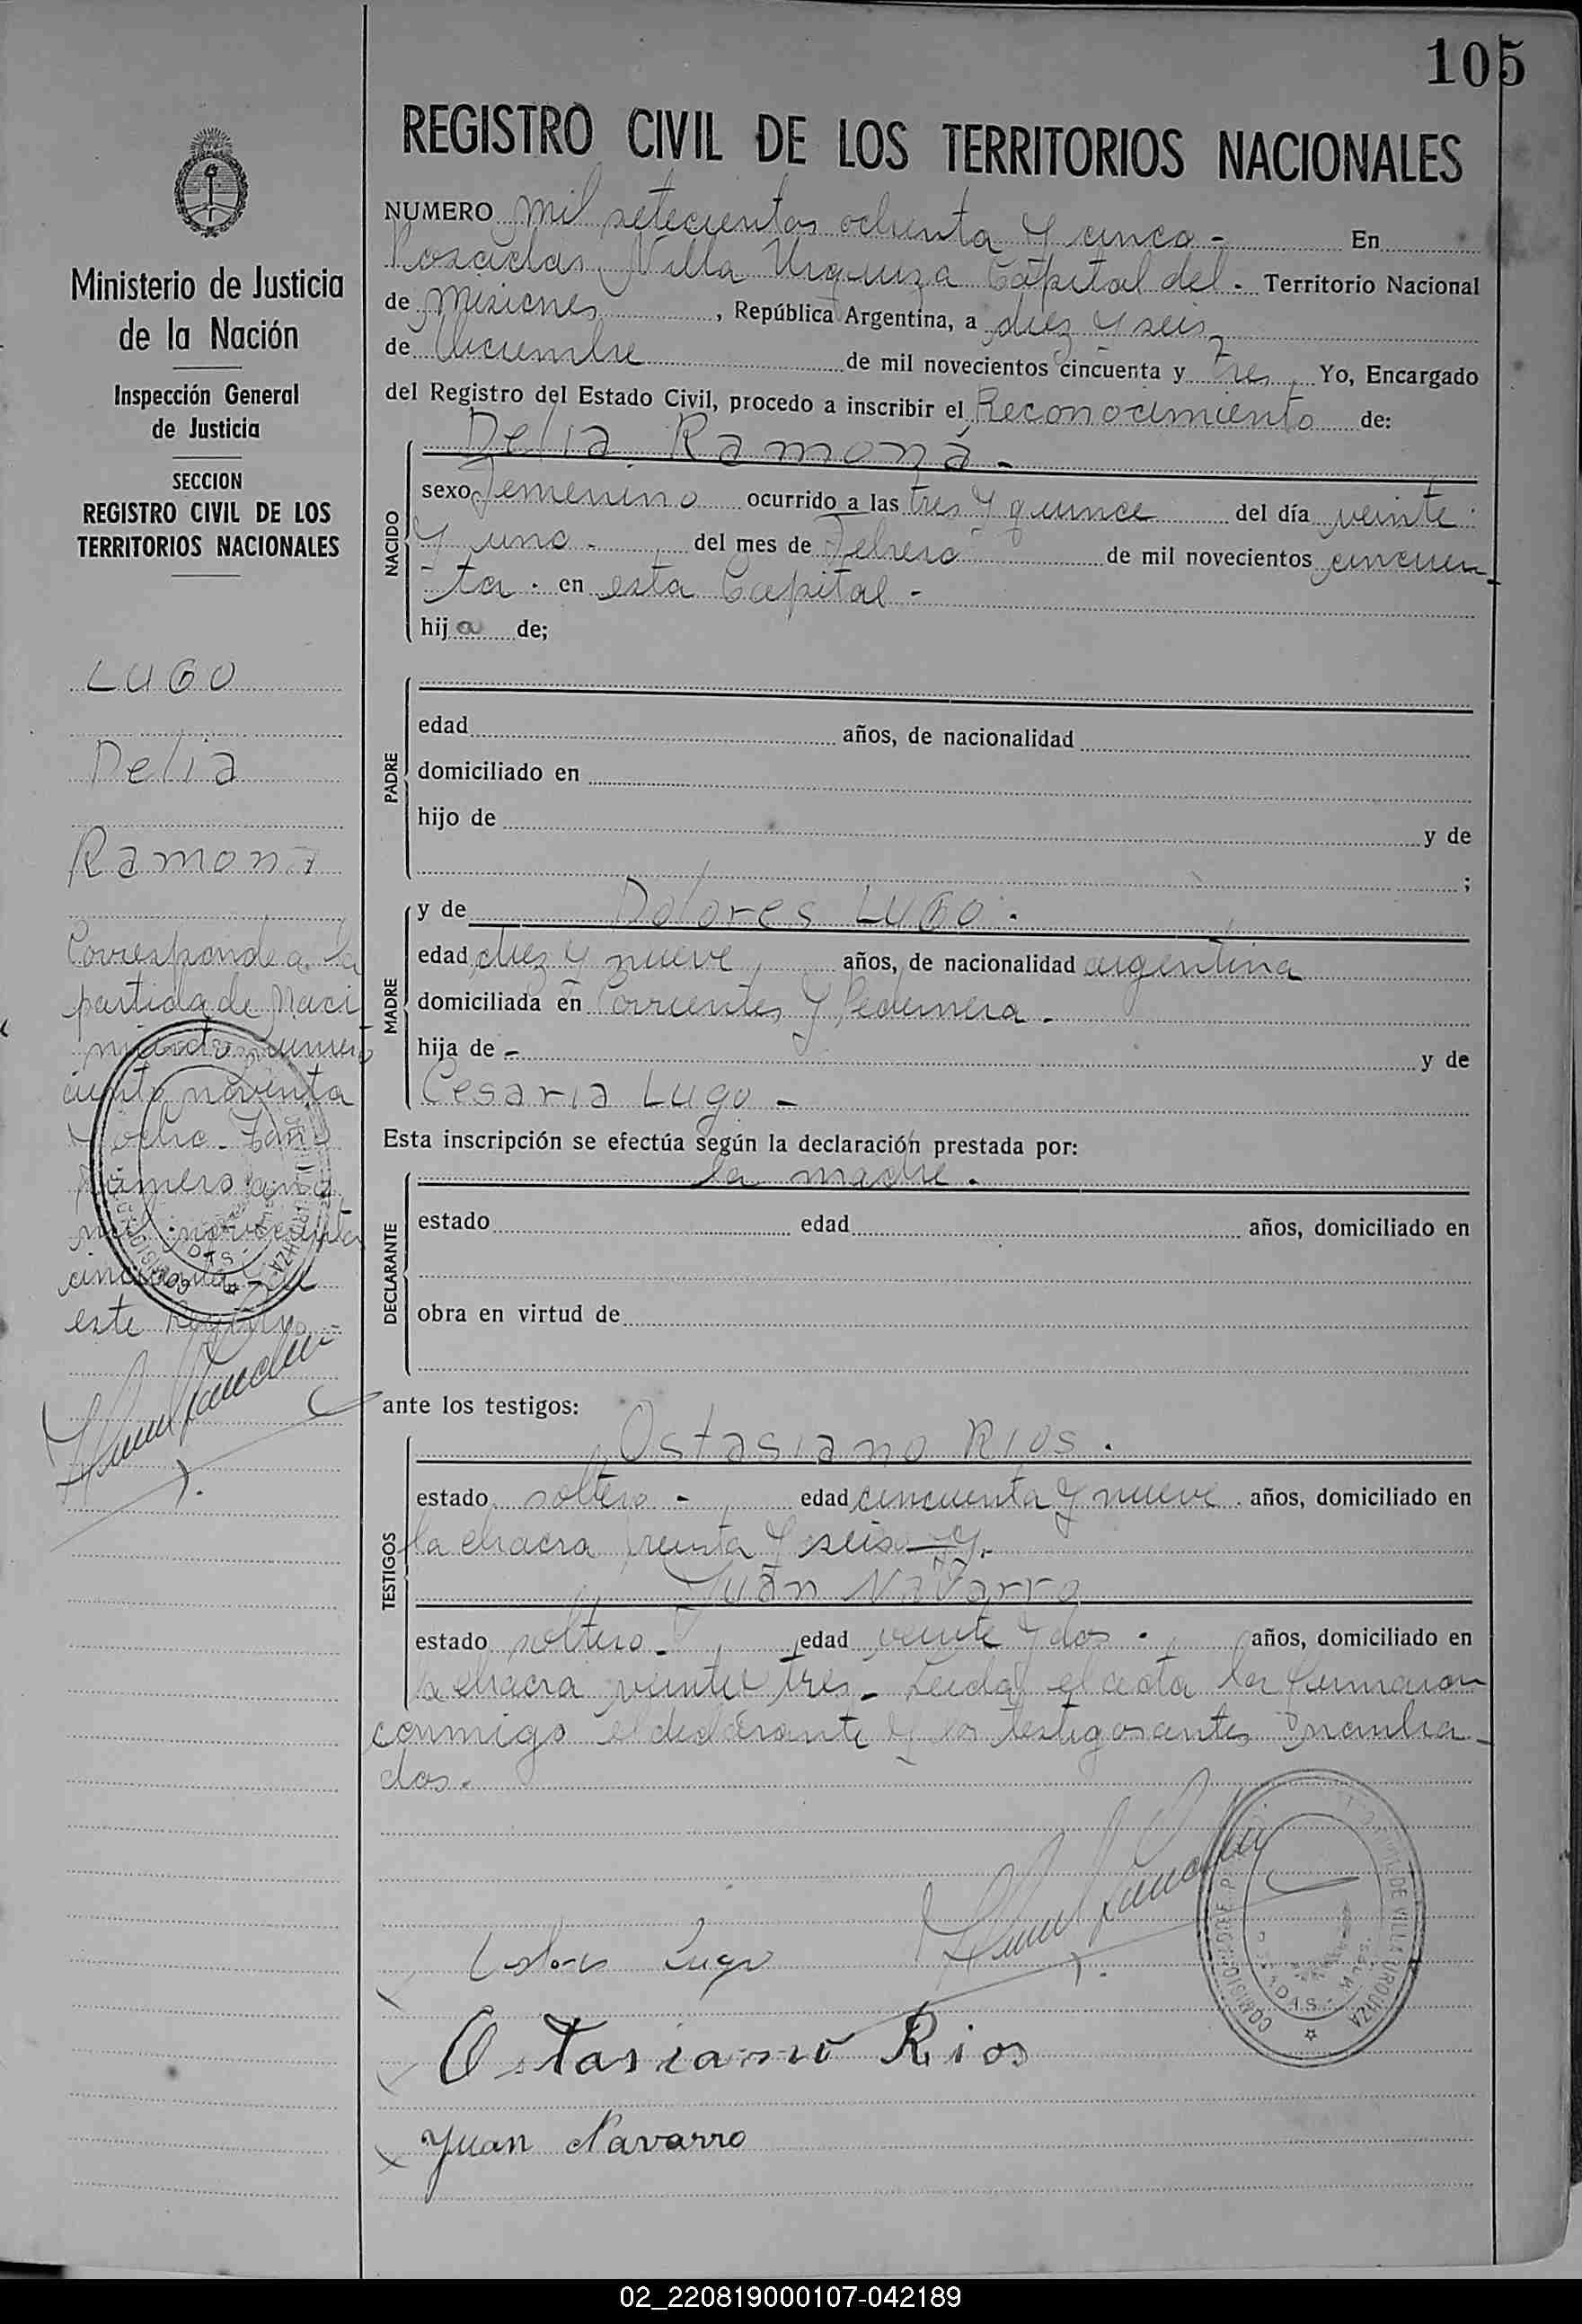 105
REGISTRO CIVIL DE LOS TERRITORIOS NACIONALES
Ministerio de Justicia
de la Nación
Inspección General
de Justicia
SECCION
REGISTRO CIVIL DE LOS
TERRITORIOS NACIONALES
LUGO
Delia
Ramona
Corresponde a la
partida de Naci
miento numero
ciento noventa
y ocho - Tomo
primero año
mil novecientos
cincuenta - de
este Registro -
NUMERO mil setecientos ochenta y cinco - En
Posadas, Villa Urquiza Capital del - Territorio Nacional
de Misiones, República Argentina, a diez y seis
de Diciembre de mil novecientos cincuenta y tres, Yo, Encargado
del Registro del Estado Civil, procedo a inscribir el Reconocimiento de:
Delia Ramona -
NACIDO
sexo femenino ocurrido a las tres y quince del día veinte
y uno - del mes de Febrero de mil novecientos cincuen
-ta - en esta Capital -
hija de;
PADRE
edad años, de nacionalidad
domiciliado en
hijo de y de
;
MADRE
y de Dolores LUGO.
edad diez y nueve, años, de nacionalidad argentina
domiciliada en Corrientes y Pedernera -
hija de - y de
Cesaria Lugo -
Esta inscripción se efectúa según la declaración prestada por:
la madre.
DECLARANTE
estado edad años, domiciliado en
obra en virtud de
ante los testigos:
TESTIGOS
Ostasiano Rios.
estado soltero - edad cincuenta y nueve. años, domiciliado en
la chacra treinta y seis — y.
Juan Navarro
estado soltero - edad veinte y dos. años, domiciliado en
la chacra veinte tres - Leida el acta la firmaron
conmigo el declarante y los testigos antes nombra-
dos.
Dolores Lugo
Ostasiano Rios
Juan Navarro
DE VILLA URQUIZA
02_220819000107-042189